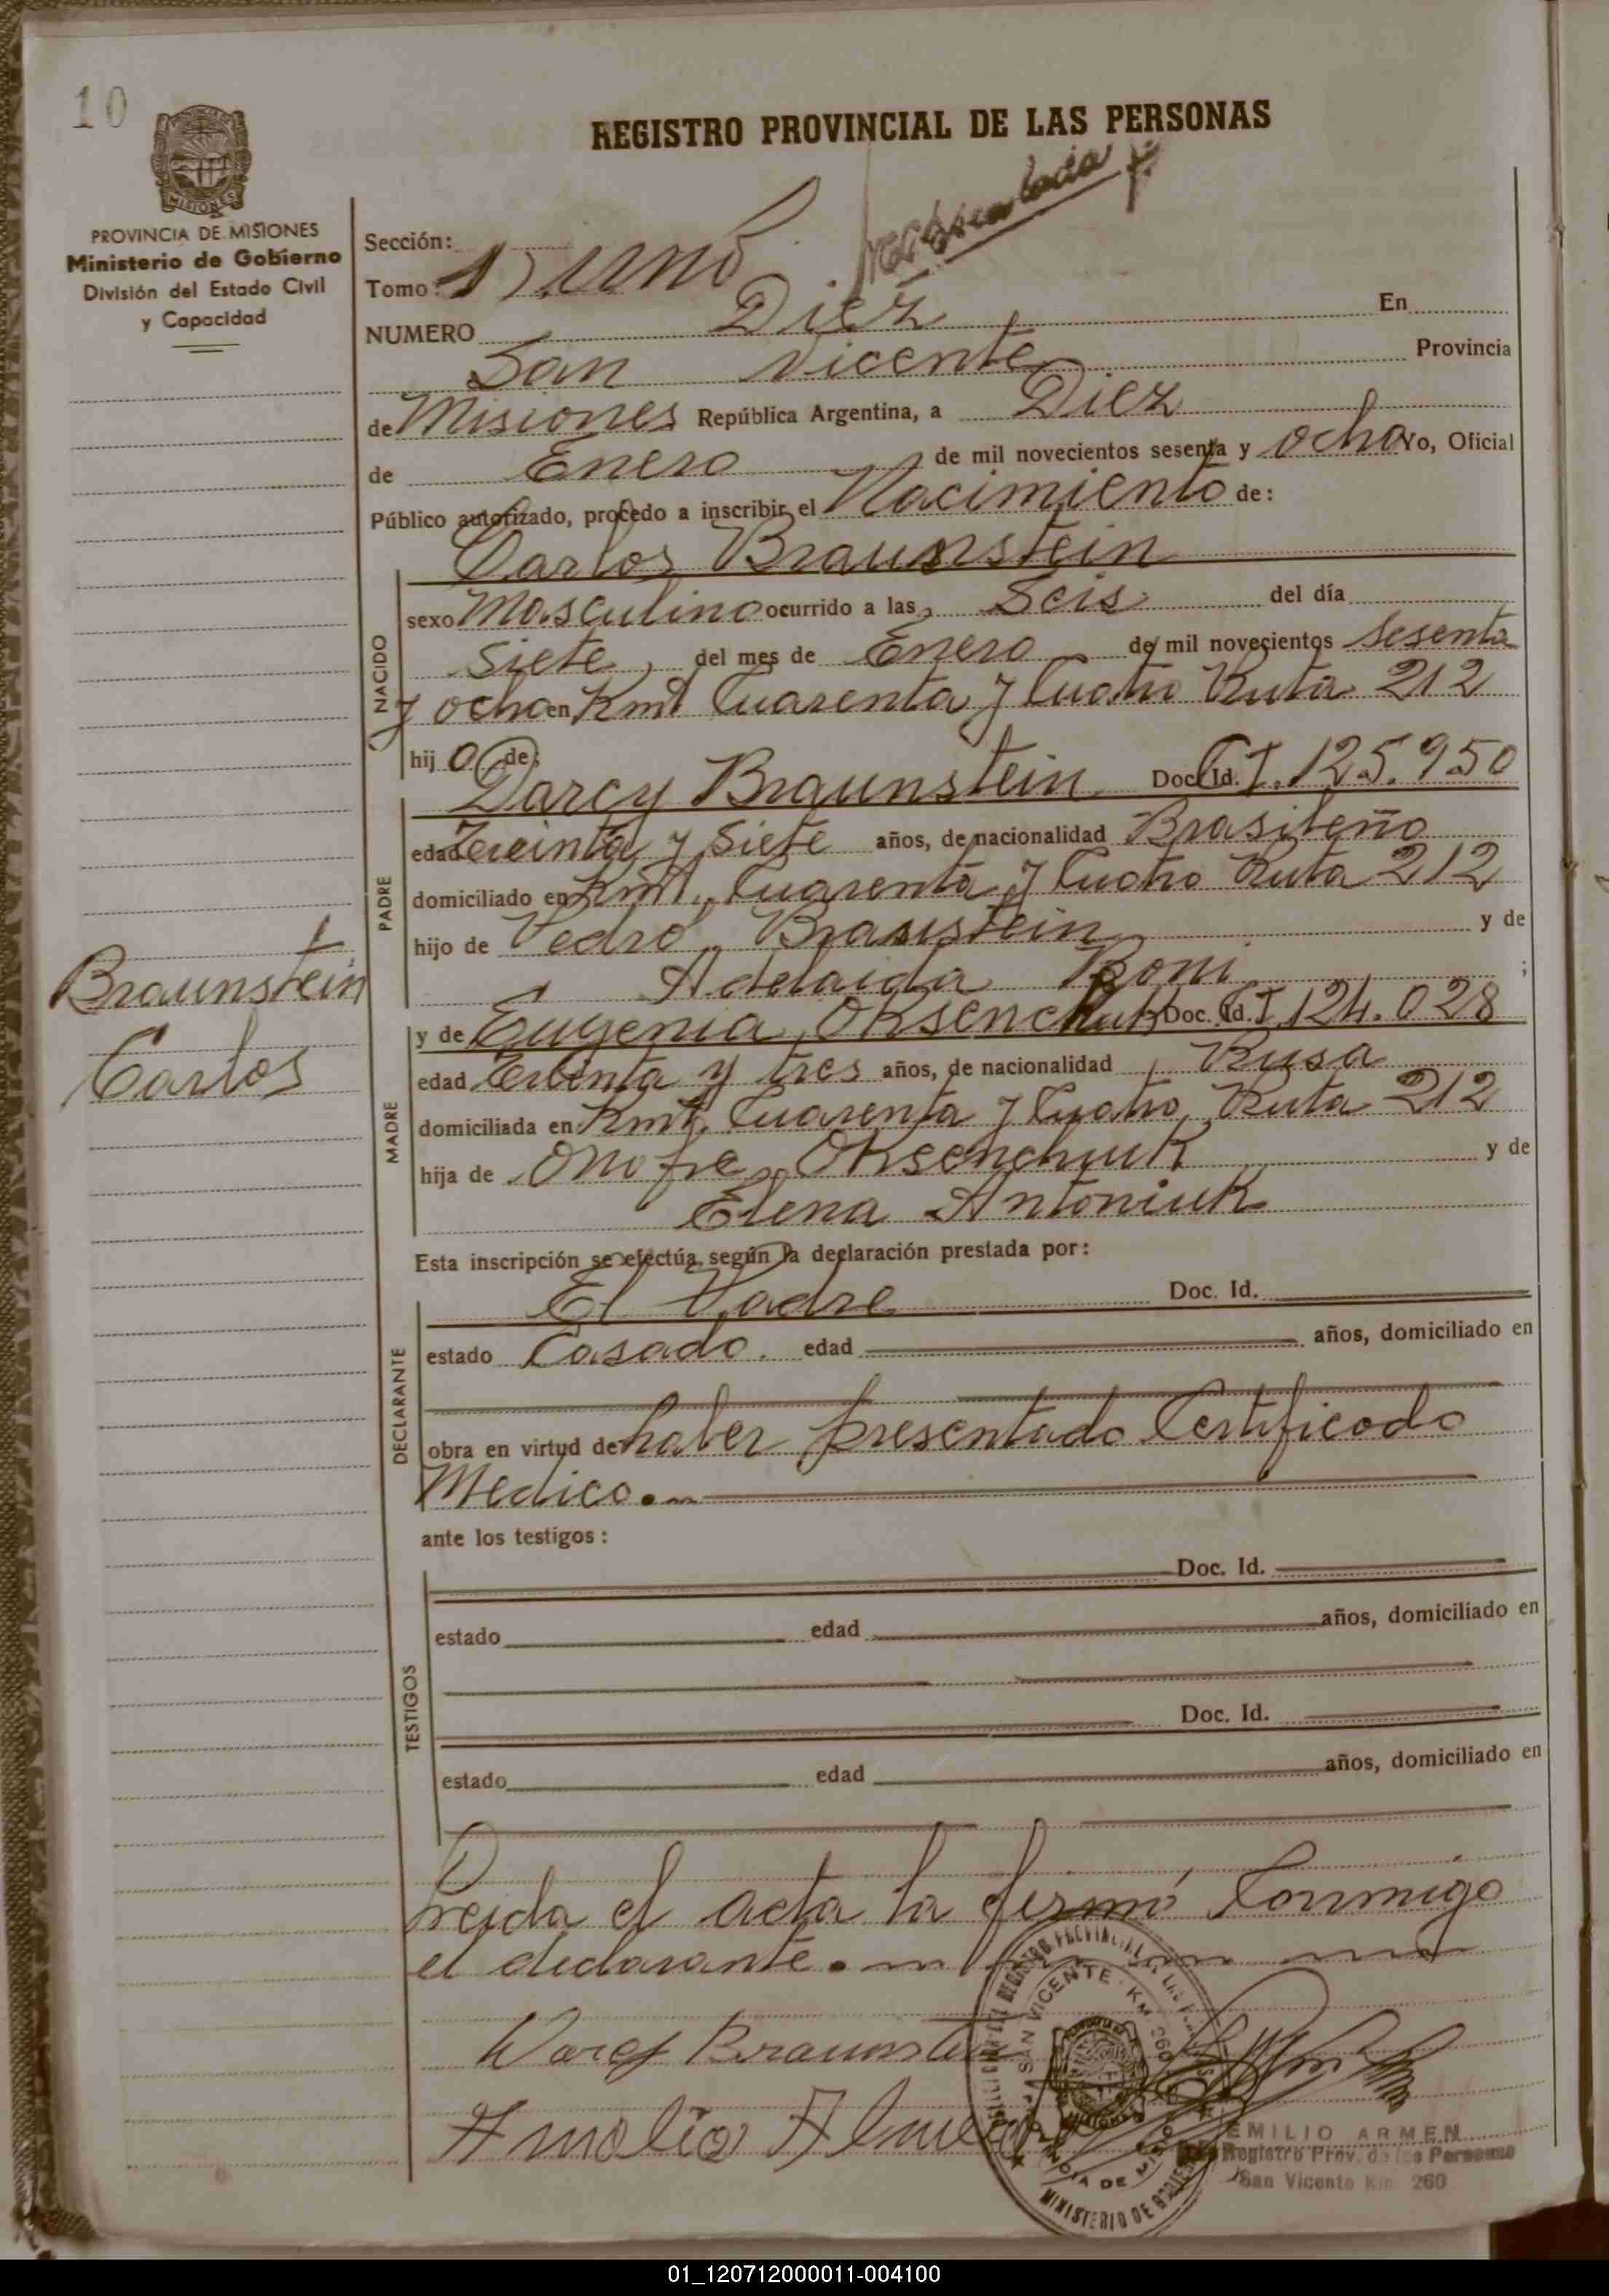 10
REGISTRO PROVINCIAL DE LAS PERSONAS
MISIONES
PROVINCIA DE MISIONES
Ministerio de Gobierno
División del Estado Civil
y Capacidad
Sección:
Tomo: 1) uno
NUMERO Diez En
San Vicente Provincia
de Misiones República Argentina, a Diez
de Enero de mil novecientos sesenta y ocho Yo, Oficial
Público autorizado, procedo a inscribir el Nacimiento de:
Carlos Braunstein
NACIDO
sexo Masculino ocurrido a las Seis del día
Siete, del mes de Enero de mil novecientos Sesenta
y ocho en Kmt Cuarenta y Cuatro Ruta 212
hijo de:
Darcy Braunstein Doc. Id. C.I. 125.950
PADRE
edad Treinta y Siete años, de nacionalidad Brasileño
domiciliado en Kmt. Cuarenta y Cuatro Ruta 212
hijo de Pedro Braunstein y de
Adelaida Roni ;
Braunstein
Carlos
y de Eugenia Oksenchuk Doc. Id. C.I 124.028
MADRE
edad Treinta y tres años, de nacionalidad Rusa
domiciliada en Kmt. Cuarenta y Cuatro Ruta 212
hija de Onofre Oksenchuk y de
Elena Antoniuk
Esta inscripción se efectúa, según la declaración prestada por:
El Padre Doc. Id.
DECLARANTE
estado Casado. edad años, domiciliado en
obra en virtud de haber presentado Certificado
Medico.
ante los testigos:
TESTIGOS
Doc. Id.
estado edad años, domiciliado en
Doc. Id.
estado edad años, domiciliado en
Leida el acta la firmó Conmigo
el declarante.
Darcy Braunstein
SAN VICENTE - KM 260
MISIONES
MINISTERIO DE GOBIERNO
EMILIO ARMEN
Registro Prov. de las Personas
San Vicente Km. 260
01_120712000011-004100